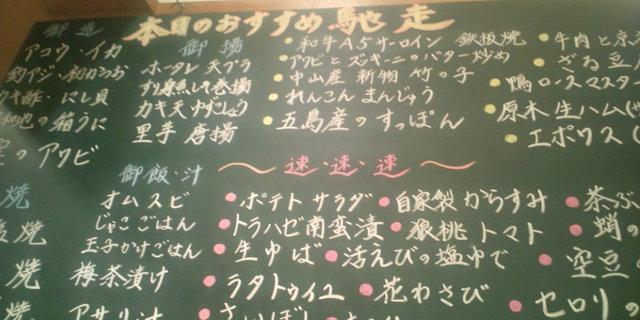 本日のおすすめ馳走
御造
アコウ・イカ
釣アジ・初かつお
カキ酢・にし貝
の箱うに
のアワビ
御揚
ホタレ天プラ
カキ天ゆずしょう
里芋唐揚
・和牛A5サーロイン 鉄板焼
・アワビとズッキーニのバター炒め
・中山産 新物 竹の子
・れんこんまんじゅう
・五島産のすっぽん
・牛肉と京
・ざる豆
・鴨ロースマスタ
・原木生ハム(
・エポワス(
焼
焼
焼
焼
御飯・汁
オムスビ
じゃこごはん
玉子かけごはん
梅茶漬け
アサリ汁
〜速・速・速〜
・ポテトサラダ ・自家製からすみ ・茶ぶ
・トラハゼ南蛮漬 ・狼桃トマト ・蛸の
・生ゆば ・活えびの塩ゆで ・空豆の
・ラタトゥイユ ・花わさび ・セロリの
・さいぼし